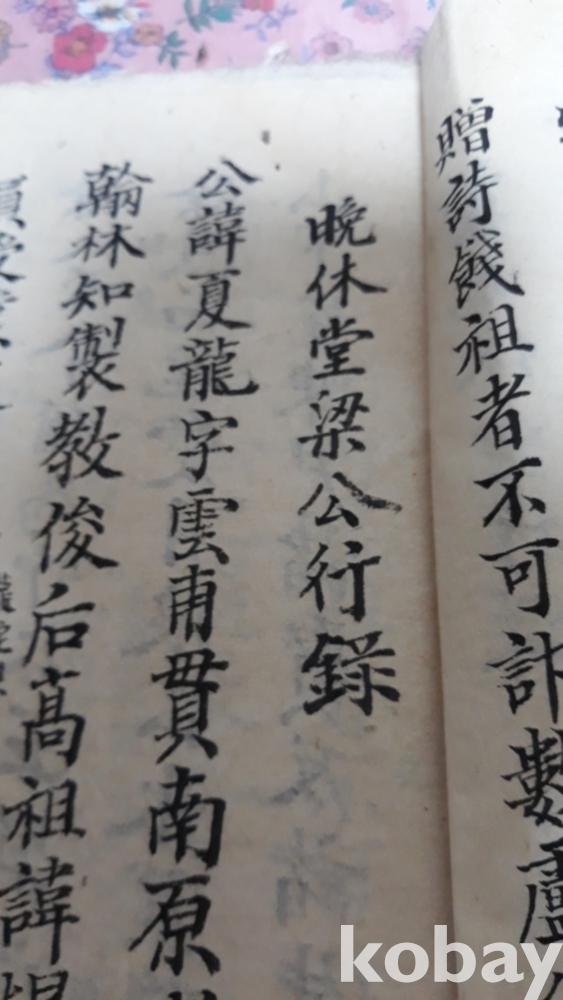 贈詩餞祖者不可計數盧
晩休堂梁公行錄
公諱夏龍字雲甫貫南原
翰林知製教俊后高祖諱
kobay